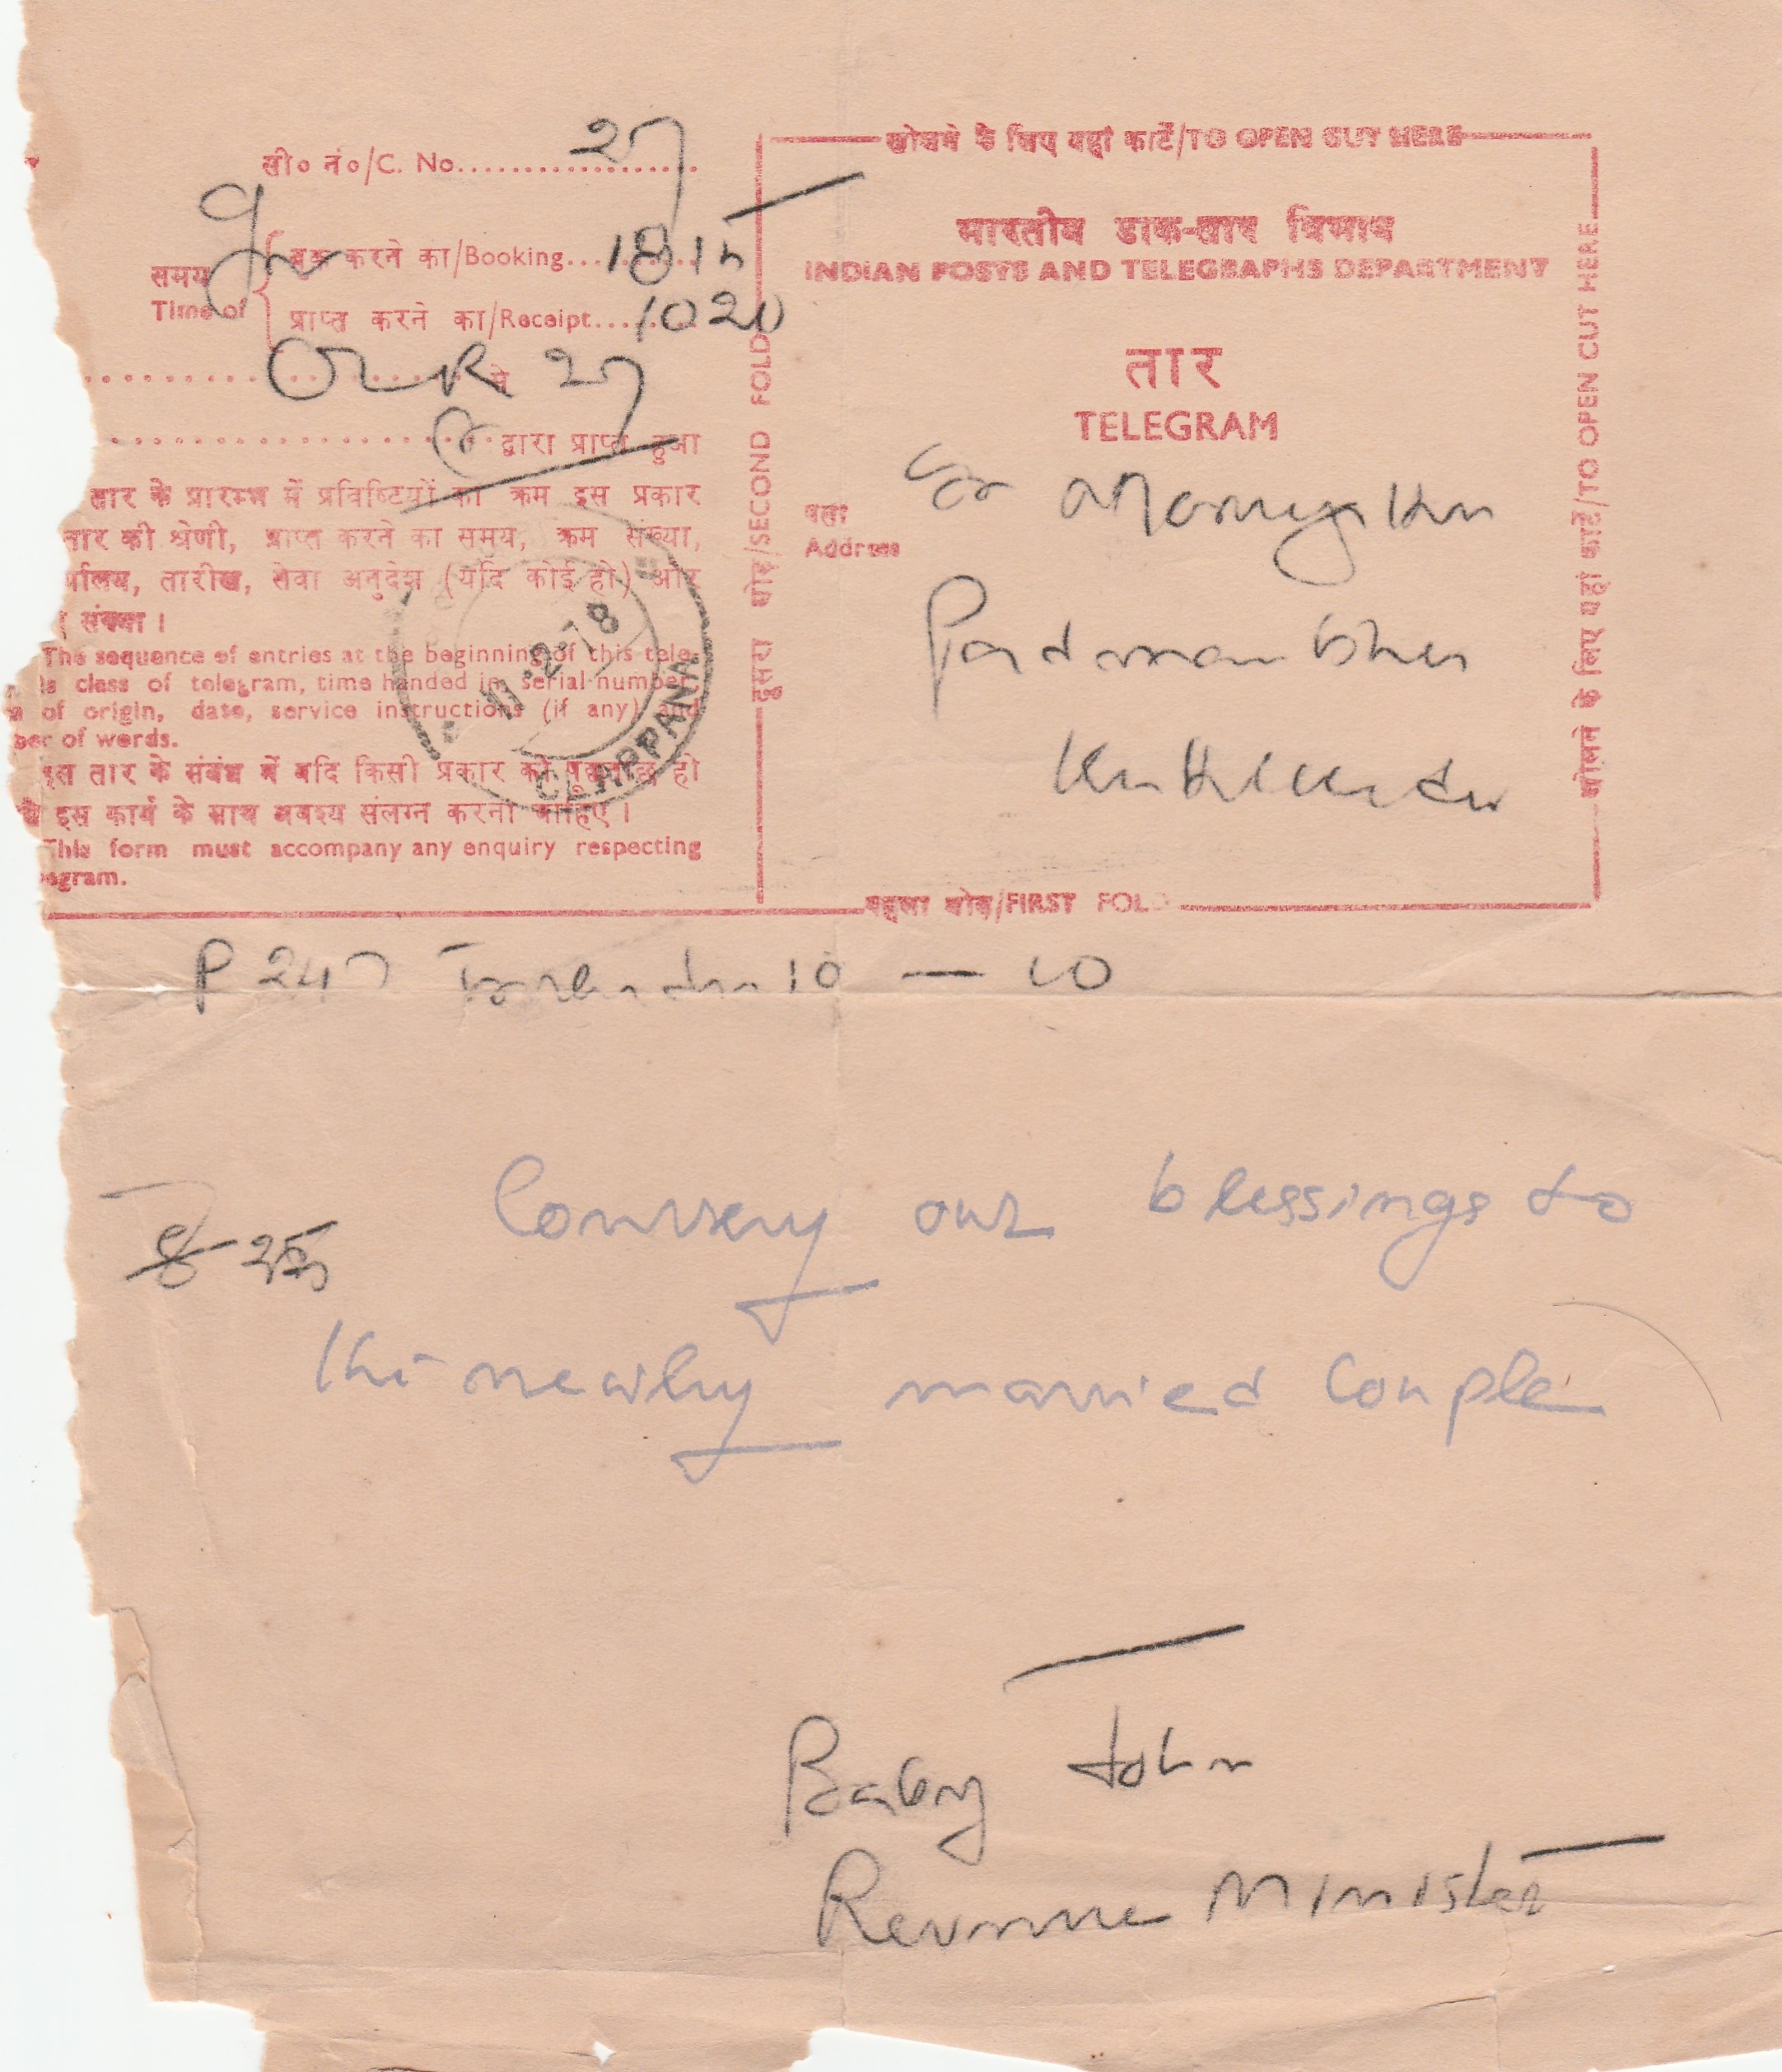 सी० नं०/C. No.................. 27
समय
Time of
बुक करने का/Booking.......... 1815
प्राप्त करने का/Receipt........ 1020
27
द्वारा प्राप्त हुआ
तार के प्रारम्भ में प्रविष्टियों का क्रम इस प्रकार
तार की श्रेणी, प्राप्त करने का समय, क्रम संख्या,
र्यालय, तारीख, सेवा अनुदेश (यदि कोई हो) और
संख्या ।
The sequence of entries at the beginning of this tele-
is class of telegram, time handed in, serial number,
of origin, date, service instructions (if any) and
ber of words.
इस तार के संबंध में यदि किसी प्रकार की पूछताछ हो
इस फार्म के साथ अवश्य संलग्न करना चाहिए ।
This form must accompany any enquiry respecting
egram.
11-2-78
CLAPPANA
दूसरा मोड़/SECOND FOLD
खोलने के लिए यहां काटें/TO OPEN CUT HERE
भारतीय डाक-तार विभाग
INDIAN POSTS AND TELEGRAPHS DEPARTMENT
तार
TELEGRAM
पता
Address
Padmanabhan
खोलने के लिए यहां काटें/TO OPEN CUT HERE
पहला मोड़/FIRST FOLD
P 247 10 — 10
Convey our blessings to
the newly married couple
Baby John
Revenue Minister